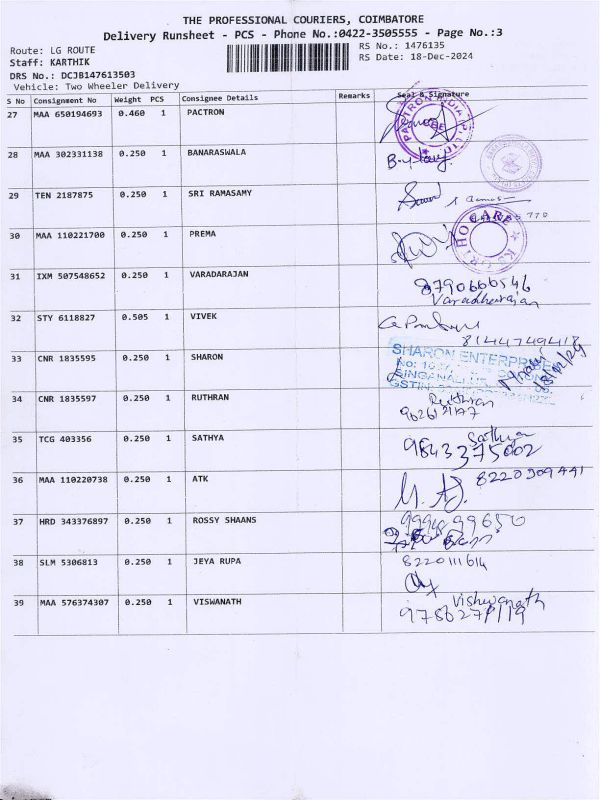 THE PROFESSIONAL COURIERS, COIMBATORE
Delivery Runsheet - PCS - Phone No.:0422-3505555 - Page No.:3
Route: LG ROUTE
RS No.: 1476135
Staff: KARTHIK
RS Date: 18-Dec-2024
DRS No.: DCJB147613503
Vehicle: Two Wheeler Delivery
S No Consignment No Weight PCS Consignee Details Remarks Seal & Signature
27 MAA 650194693 0.460 1 PACTRON
28 MAA 302331138 0.250 1 BANARASWALA
29 TEN 2187875 0.250 1 SRI RAMASAMY
30 MAA 110221700 0.250 1 PREMA
31 IXM 507548652 0.250 1 VARADARAJAN
8790666546
Varadharajan
32 STY 6118827 0.505 1 VIVEK
8144749418
33 CNR 1835595 0.250 1 SHARON
SHARON ENTERPRISE
34 CNR 1835597 0.250 1 RUTHRAN
Ruthran
35 TCG 403356 0.250 1 SATHYA
Sathya
9843375002
36 MAA 110220738 0.250 1 ATK
8220309441
37 HRD 343376897 0.250 1 ROSSY SHAANS
9994899650
38 SLM 5306813 0.250 1 JEYA RUPA
8220111614
39 MAA 576374307 0.250 1 VISWANATH
Vishwanath